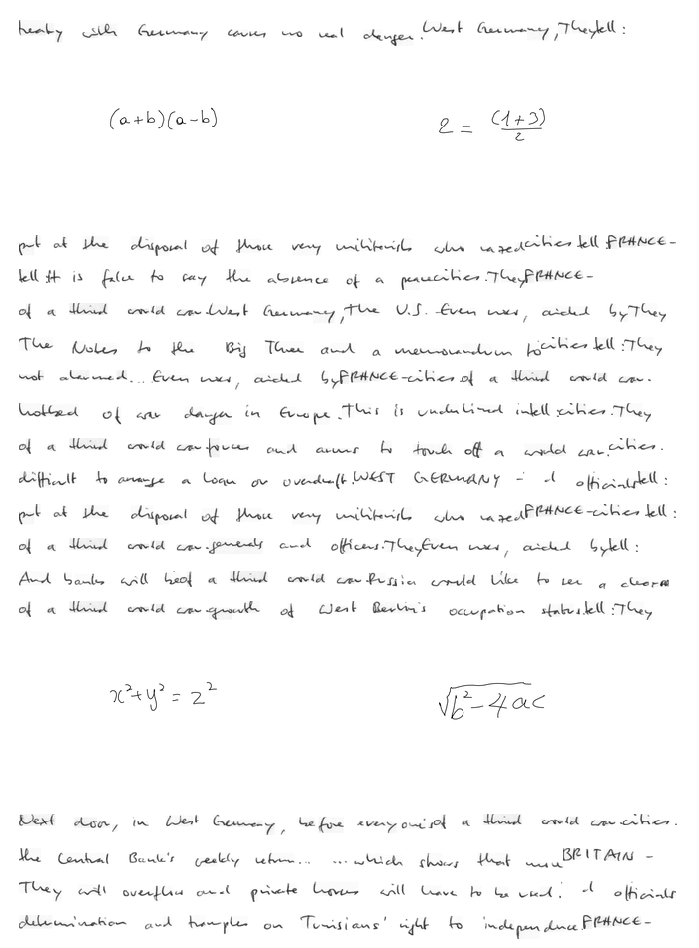 treaty with Germany causes no real danger. West Germany, They tell :
(a+b)(a-b)
2 = (1+3)/2
put at the disposal of those very militarists who razed cities tell FRANCE -
tell It is false to say the absence of a peace cities. They FRANCE -
of a third world war. West Germany, the U.S. Even now, aided by They
The Notes to the Big Three and a memorandum to cities tell : They
not alarmed... Even now, aided by FRANCE - cities of a third world war.
hotbed of war danger in Europe. This is underlined in tell : cities. They
of a third world war forces and arms to touch off a world war. cities.
difficult to arrange a loan or overdraft. WEST GERMANY - d officials tell :
put at the disposal of those very militarists who razed FRANCE - cities tell :
of a third world war. generals and officers. They Even now, aided by tell :
And banks will be of a third world war Russia would like to see a
of a third world war growth of West Berlin's occupation status. tell : They
x²+y² = z²
√b²-4ac
Next door, in West Germany, before everyone's of a third world war cities.
the Central Bank's weekly return... ...which shows that BRITAIN -
They will overflow and private houses will have to be used. d officials
determination and tramples on Tunisians' right to independence FRANCE -